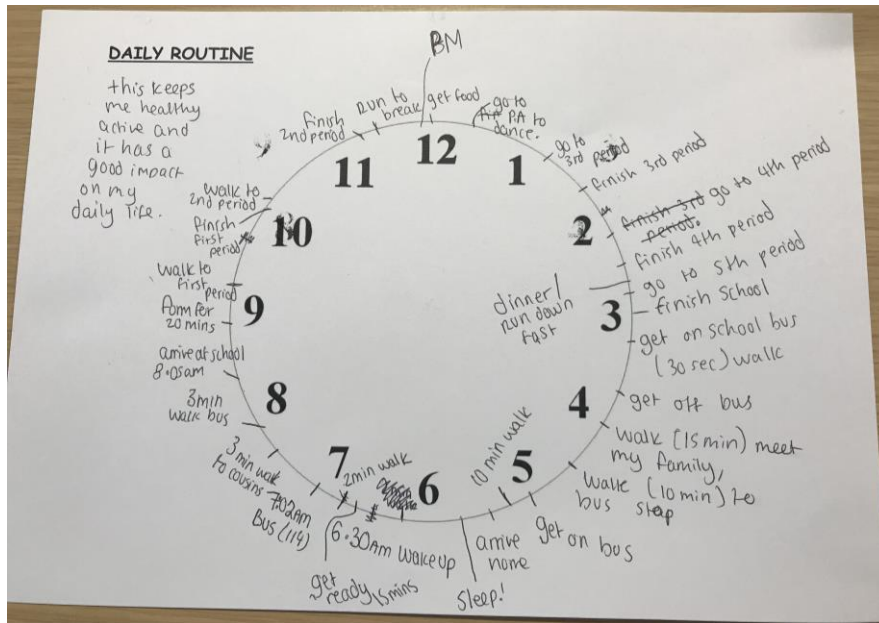 DAILY ROUTINE
this keeps
me healthy
active and
it has a
good impact
on my
daily life.
BM
get food
go to
PA to
dance.
12
go to
3rd period
1
finish 3rd period
2
finish 3rd go to 4th period
period.
finish 4th period
go to 5th period
dinner/
run down
fast
3
finish school
get on school bus
(30 sec) walk
4
get off bus
walk (15 min) meet
my family,
walk (10 min) to
bus stop
5
get on bus
10 min walk
arrive
home
sleep!
6
6.30AM wake up
get
ready 15mins
2min walk
7
7.02AM
BUS (114)
3 min walk
to cousins
3min
walk bus
8
arrive at school
8.05am
Form for
20 mins
9
walk to
first
period
finish
first
period
10
walk to
2nd period
11
finish
2nd period
Run to
break